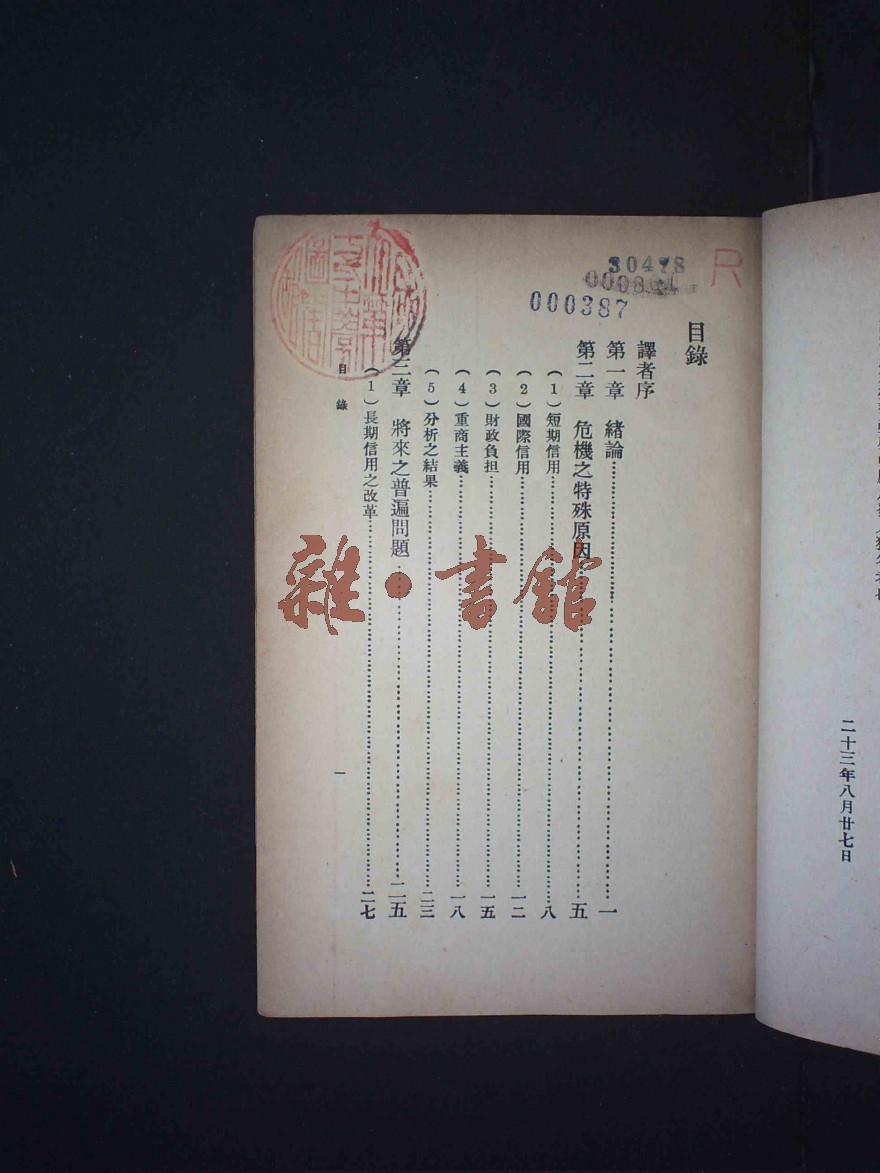 30478
000387
R
目錄
譯者序
第一章 緒論……一
第二章 危機之特殊原因……五
(1)短期信用……八
(2)國際信用……一二
(3)財政負担……一五
(4)重商主義……一八
(5)分析之結果……二三
第三章 將來之普遍問題……二五
(1)長期信用之改革……二七
目錄
一
二十三年八月廿七日
雜·書館